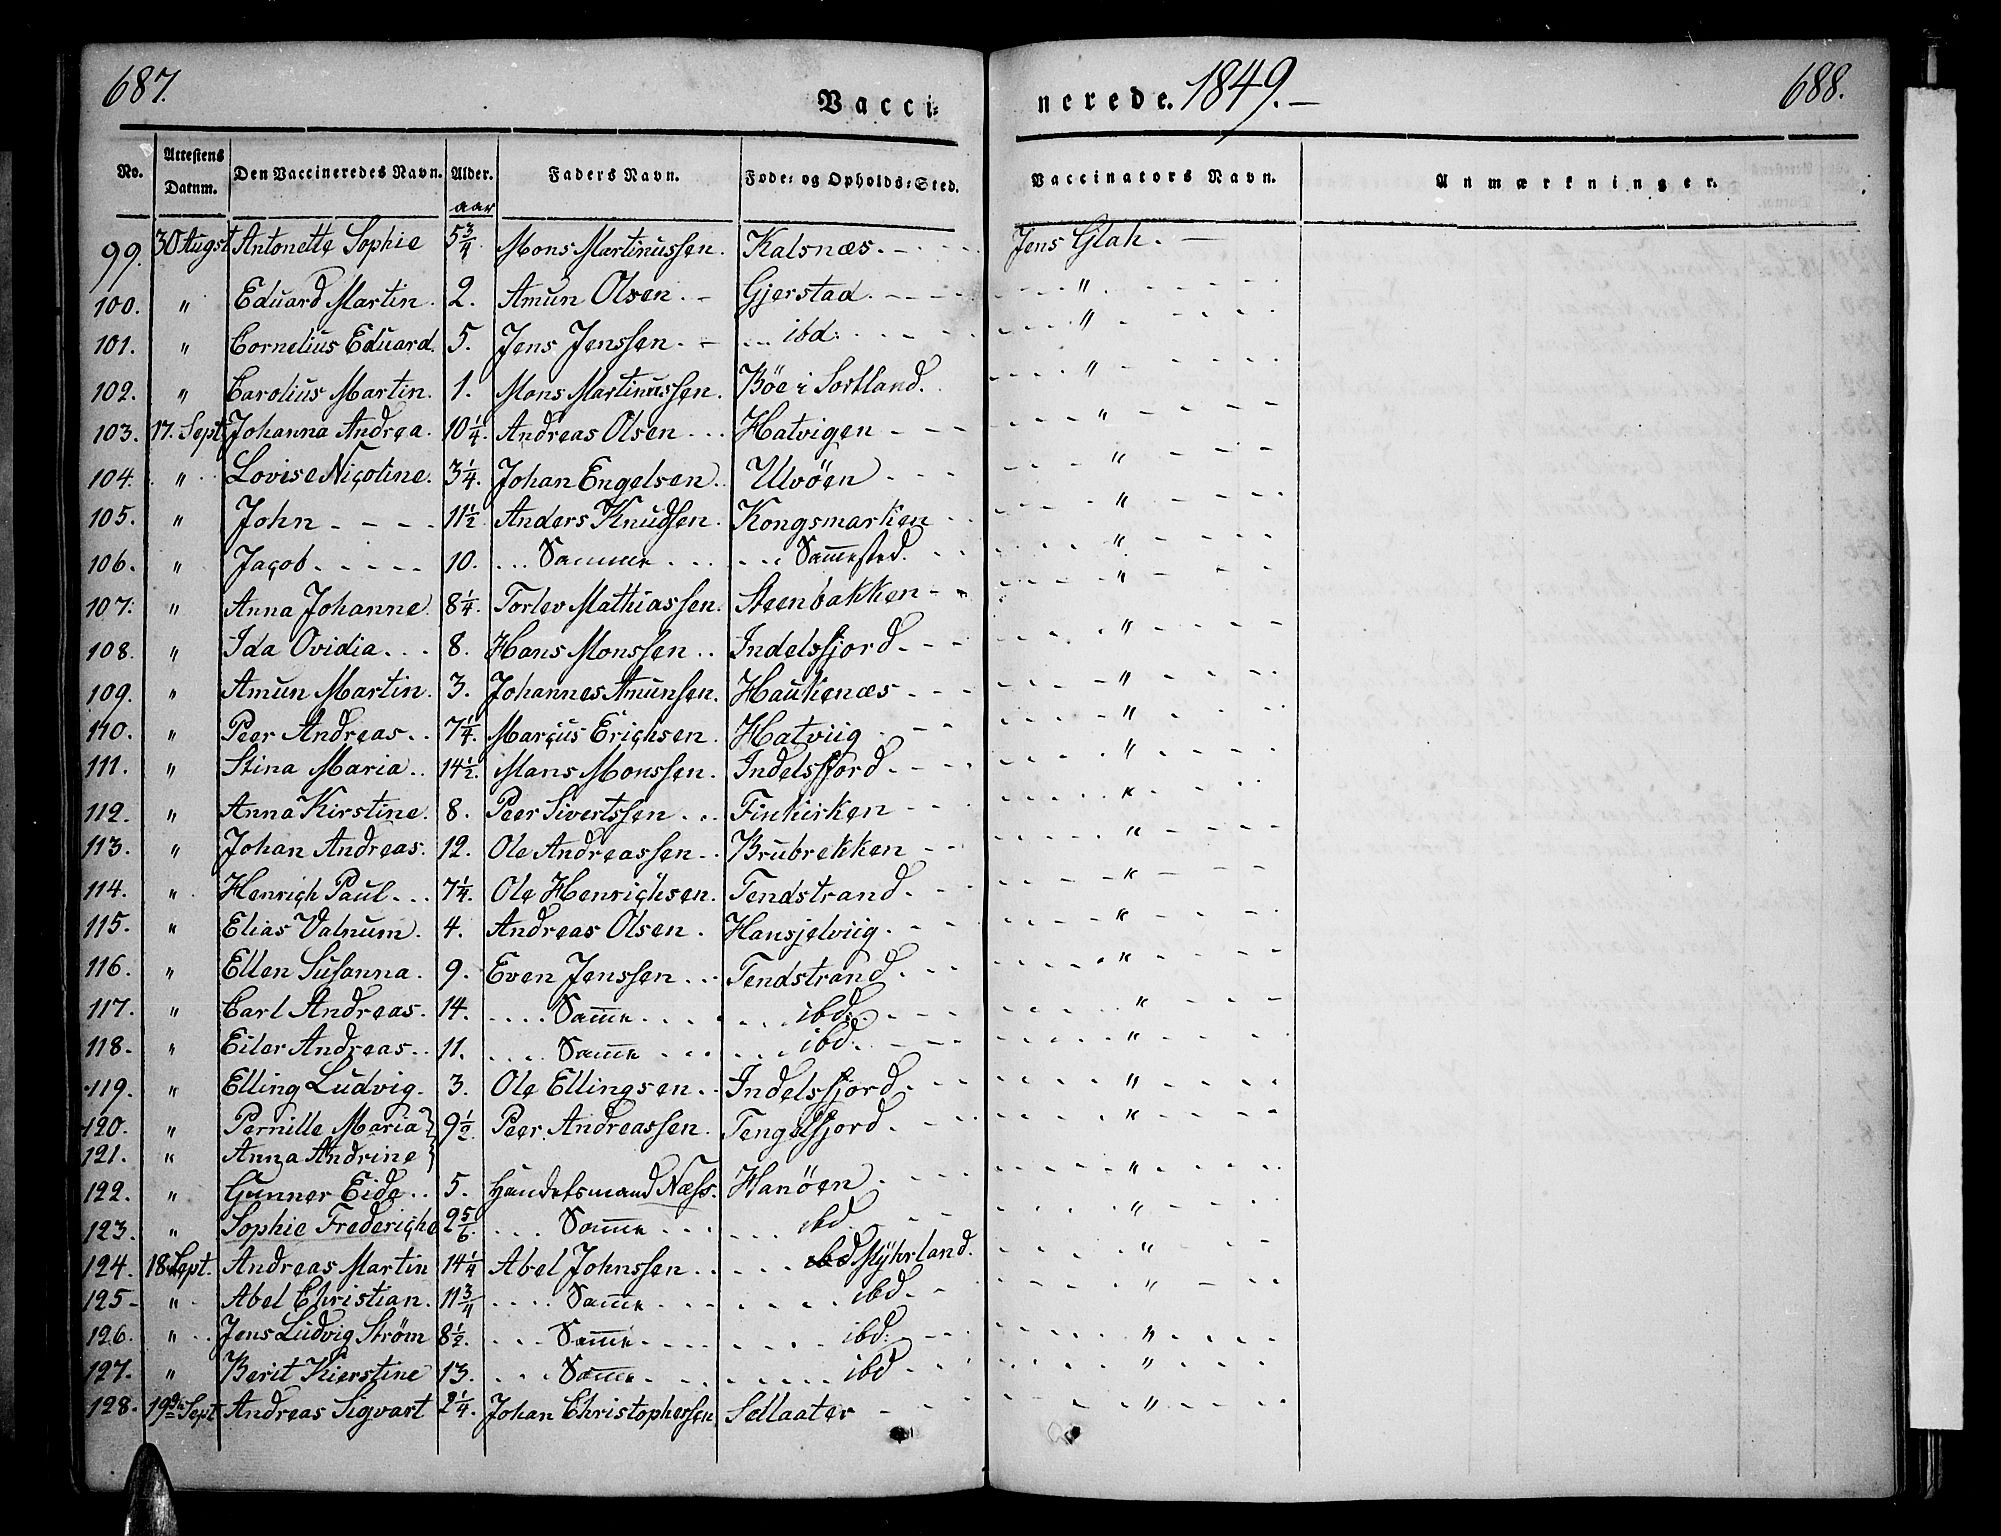 687. Vacci- nerede. 1849. — 688.
No. Attestens Datum. Den Vaccineredes Navn. Alder. Faders Navn. Føde- og Opholds-Sted. Vaccinators Navn. Anmærkninger.
aar
99. 30 Augst Antonette Sophie 5 3/4. Mons Martinussen. Kalsnæs. Jens Glah. —
100. " Eduard Martin. 2. Amun Olsen. Gjerstad. "
101. " Cornelius Eduard. 5. Jens Jenssen. ibd: "
102. " Carolius Martin. 1. Mons Martinussen. Böe i Sortland. "
103. 17. Sept. Johanna Andrea. 10 1/4. Andreas Olsen Hatvigen "
104. " Lovise Nicoline. 3 1/4. Johan Engelsen. Ulvöen "
105. " John 11 1/2. Anders Knudsen. Kongsmarken "
106. " Jacob 10. Samme Sammested. "
107. " Anna Johanne. 8 1/4. Torlev Mathiassen. Steenbakken "
108. " Ida Ovidia 8. Hans Monssen Indelsfjord "
109. " Amun Martin. 3. Johannes Amunsen. Haukenæs "
110. " Peer Andreas 7 1/4. Marcus Erichsen. Hatviig "
111. " Stina Maria 14 1/2. Mans Monssen. Indelsfjord "
112. " Anna Kirstine. 8. Peer Sivertssen Finkirken "
113. " Johan Andreas. 12. Ole Andreassen Brubrekken "
114. " Henrich Paul 7 1/4. Ole Henrichsen. Tendstrand "
115. " Elias Valnum. 4. Andreas Olsen. Hansjelviig "
116. " Ellen Susanna. 9. Even Jenssen Tendstrand "
117. " Carl Andreas. 14. Samme ibd: "
118. " Eiler Andreas 11. Samme ibd: "
119. " Elling Ludvig. 3. Ole Ellingsen Indelsfjord "
120. " Pernille Maria 9 1/2. Peer Andreassen. Tengelfjord "
121. " Anna Andrine
122. " Gunner Eide 5. Handelsmand Næss. Hanöen "
123. " Sophie Frederiche 2 5/6. Samme ibd "
124. 18 Sept. Andreas Martin 14 1/4 Abel Johnssen ibd Myhrland. "
125. " Abel Christian. 11 3/4 Samme ibd "
126. " Jens Ludvig Strøm 8 1/2. Samme ibd: "
127. " Berit Kierstine 13. Samme ibd "
128. 19de Sept Andreas Sigvart 2 1/4. Johan Christophersen Sellaater "